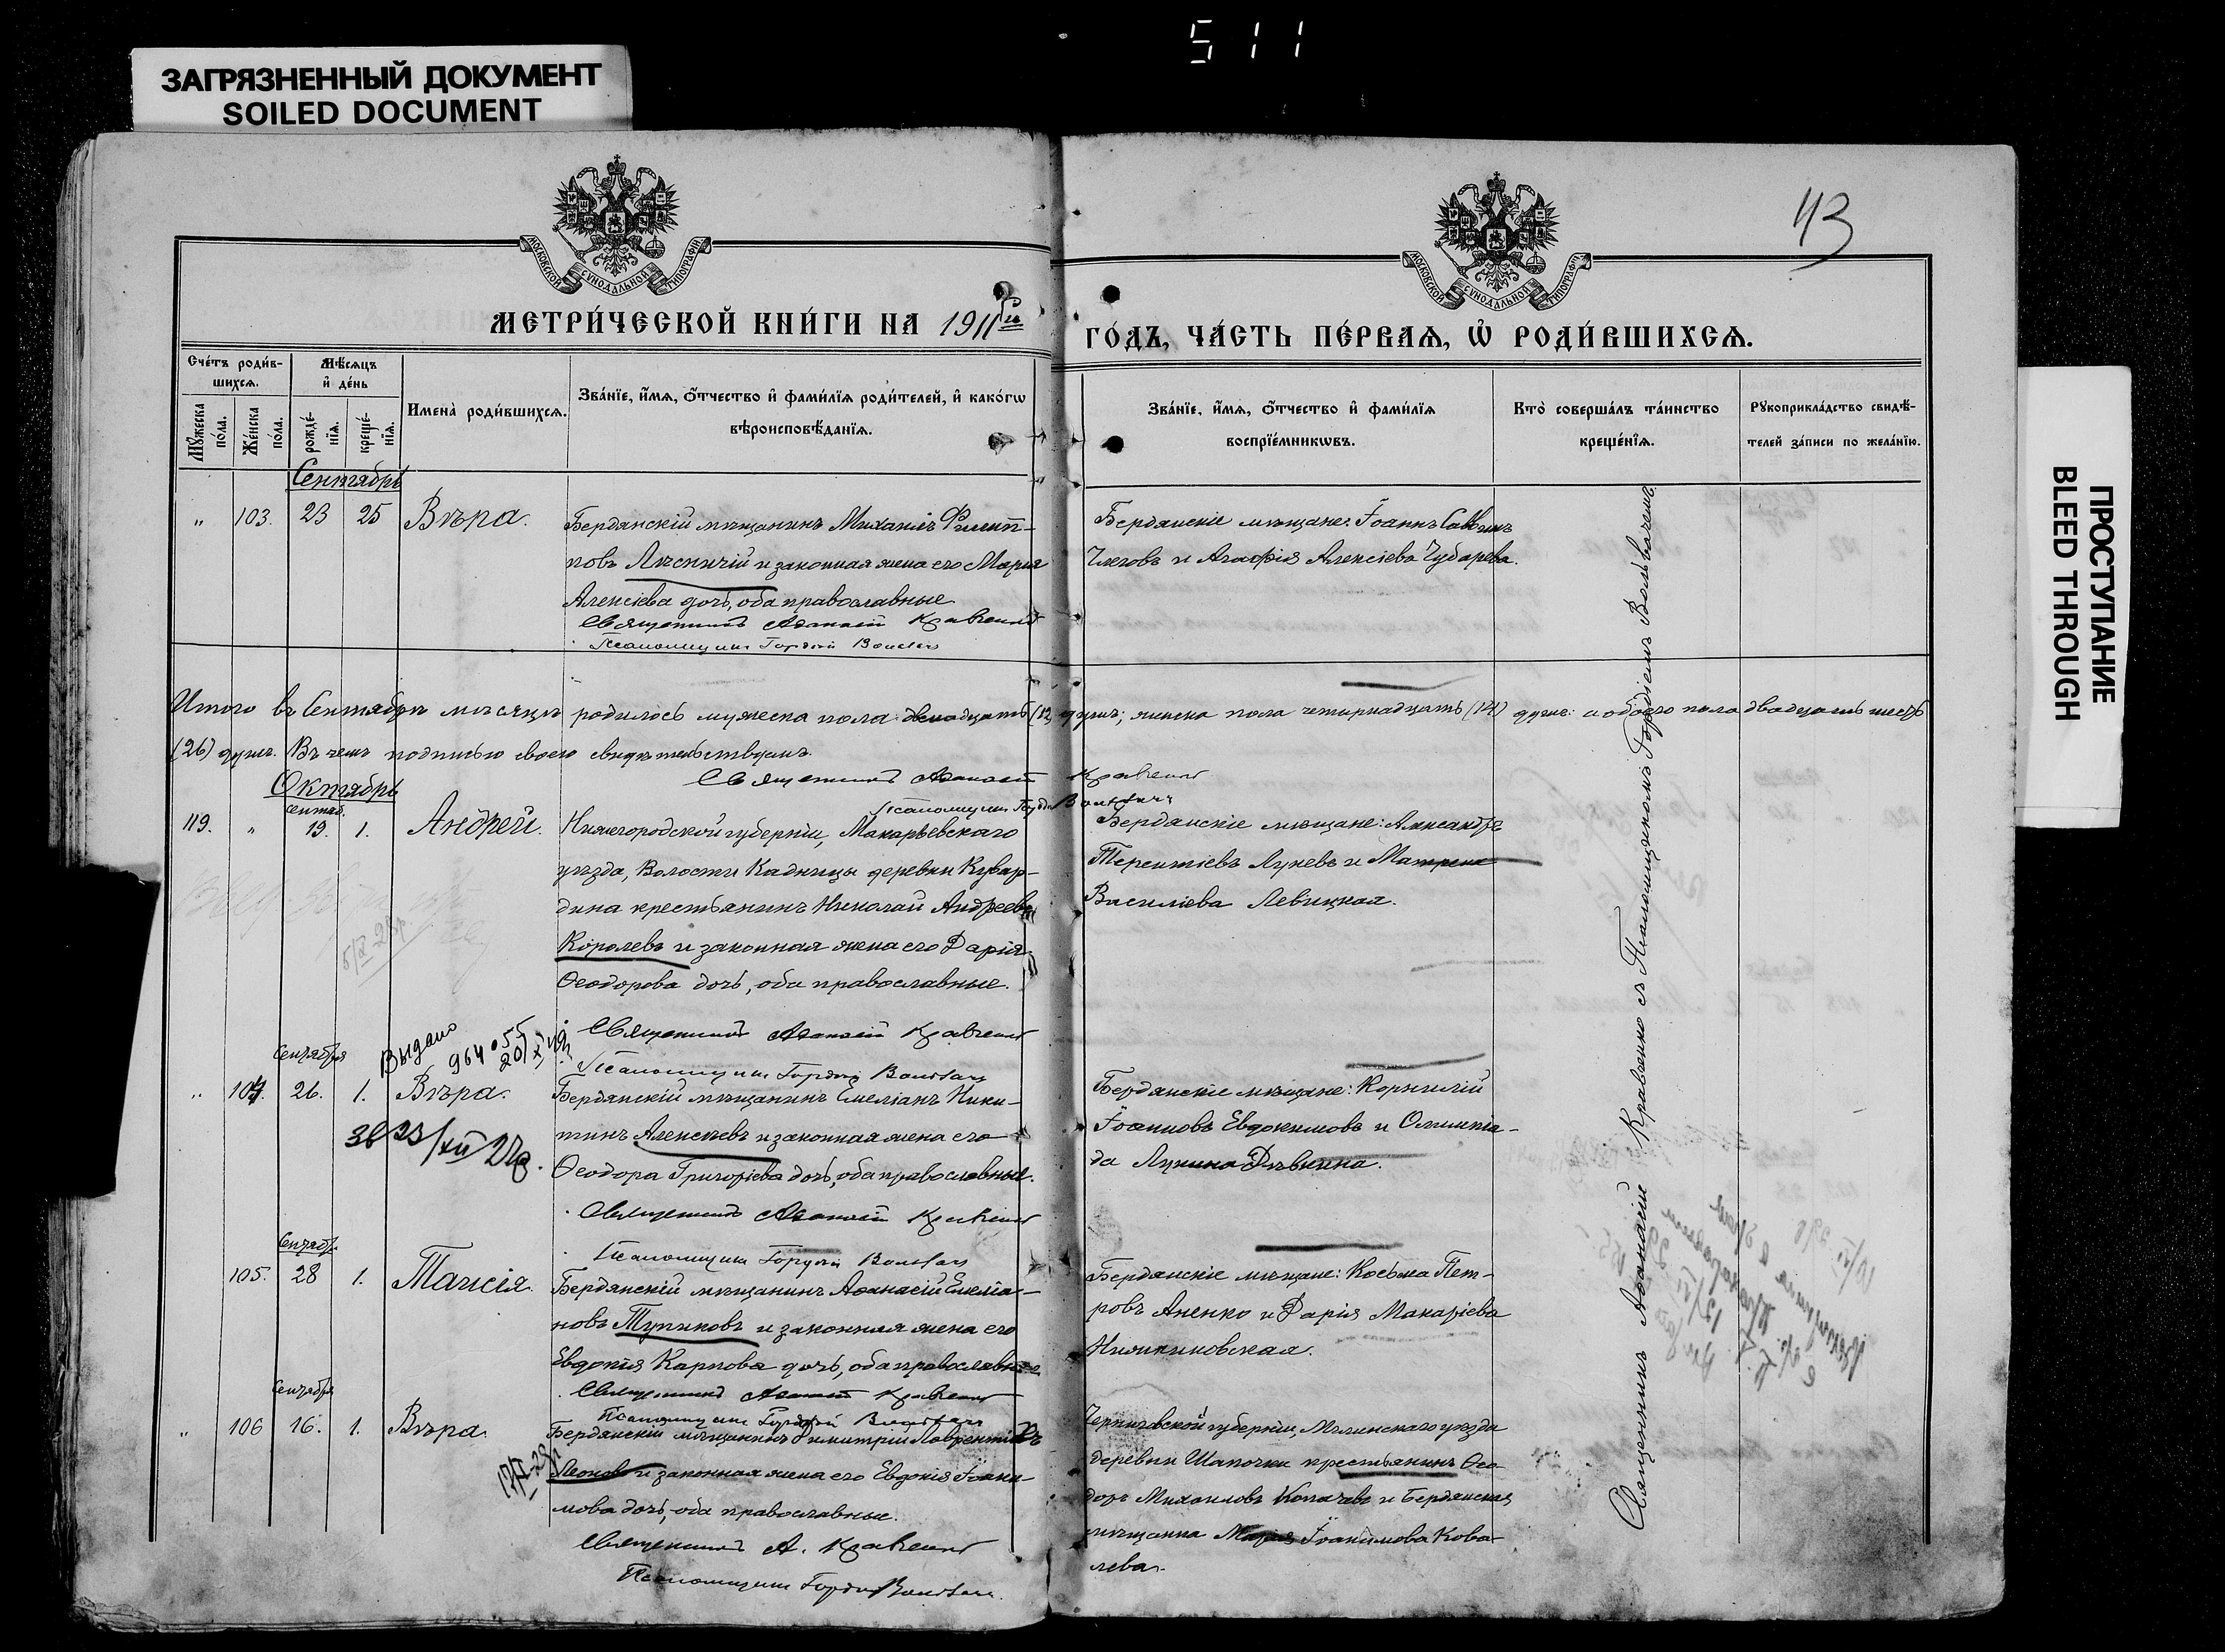 511
ЗАГРЯЗНЕННЫЙ ДОКУМЕНТ
SOILED DOCUMENT
ПРОСТУПАНІЕ
BLEED THROUGH
43
МОСКОВСКОЙ СУНОДАЛЬНОЙ ТИПОГРАФІИ
МОСКОВСКОЙ СУНОДАЛЬНОЙ ТИПОГРАФІИ
МЕТРИ́ЧЕСКОЙ КНИ́ГИ НА 1911й
ГО́ДЪ, ЧА́СТЬ ПЕ́РВАѦ, Ѡ҆ РОДИ́ВШИХСѦ.
Сче́тъ роди́в-
шихсѧ.
Мꙋ́жеска по́ла.
Же́нска по́ла.
Мѣ́сѧцъ
и҆ де́нь
рожде́-нїѧ.
креще́-нїѧ.
Имена̀ роди́вшихсѧ.
Зва́нїе, и҆́мѧ, ѻ҆́тчество и҆ фами́лїѧ роди́телей, и҆ како́гѡ
вѣроисповѣ́данїѧ.
Зва́нїе, и҆́мѧ, ѻ҆́тчество и҆ фами́лїѧ
воспрїе́мникѡвъ.
Кто̀ соверша́лъ та́инство
креще́нїѧ.
Рꙋкоприкла́дство свидѣ́-
телей за́писи по жела́нїю.
Сентябрь
" 103. 23 25 Вѣра.
Бердянскій мѣщанинъ Михаилъ Филип-
повъ Лѣсничій и законная жена его Марія
Алексіева дочь, оба православные
Священникъ Аѳанасій Кравченко
Псаломщикъ Гордій
Бердянскіе мѣщане: Іоаннъ Саввинъ
и Агафія Алексіева Чубарева.
Итого въ Сентябрѣ мѣсяцѣ родилось мужеска пола двенадцать (12) душъ; женска пола четырнадцать (14) душъ: а обоего пола двадцать шесть
(26) душъ. Въ чемъ подписью своею свидѣтельствуемъ.
Священникъ Аѳанасій Кравченко
Псаломщикъ
Октябрь
Сентяб.
119. " 19. 1. Андрей.
Нижегородской губерніи, Макарьевскаго
уѣзда, Волости Кадницы деревни Кувар-
дина крестьянинъ Николай Андреевъ
Королевъ и законная жена его Дарія
Ѳеодорова дочь, оба православные.
Священникъ Аѳанасій Кравченко
Псаломщикъ Гордій
Бердянскіе мѣщане: Александръ
Терентіевъ Луневъ и Матрена
Василіева Левицкая.
Выдано
Сентября
" 104. 26. 1. Вѣра.
Бердянскій мѣщанинъ Емеліанъ Ники-
тинъ Алексѣевъ и законная жена его
Ѳеодора Григоріева дочь, оба православные.
Священникъ Аѳанасій Кравченко
Псаломщикъ Гордій
Бердянскіе мѣщане: Корнилій
Іоанновъ Евдокимовъ и Олимпіа-
да
Сентяб.
105. 28 1. Таисія.
Бердянскій мѣщанинъ Аѳанасій Емеліа-
новъ Тупиковъ и законная жена его
Евдокія Карпова дочь, оба православные
Священникъ Аѳанасій Кравченко
Псаломщикъ Гордій
Бердянскіе мѣщане: Косьма Пет-
ровъ Аненко и Дарія Макаріева
Сентября
" 106 16. 1. Вѣра.
Бердянскій мѣщанинъ Димитрій Лаврентіевъ
Леоновъ и законная жена его Евдокія Іоаки-
мова дочь, оба православные.
Священникъ А. Кравченко
Псаломщикъ Гордій
Черниговской губерніи, Мглинскаго уѣзда
деревни Шапочки крестьянинъ Ѳео-
доръ Михаиловъ Копачевъ и Бердянская
мѣщанка Марія Іоакимова Кова-
лева.
Священникъ Аѳанасій Кравченко съ Псаломщикомъ Гордіемъ